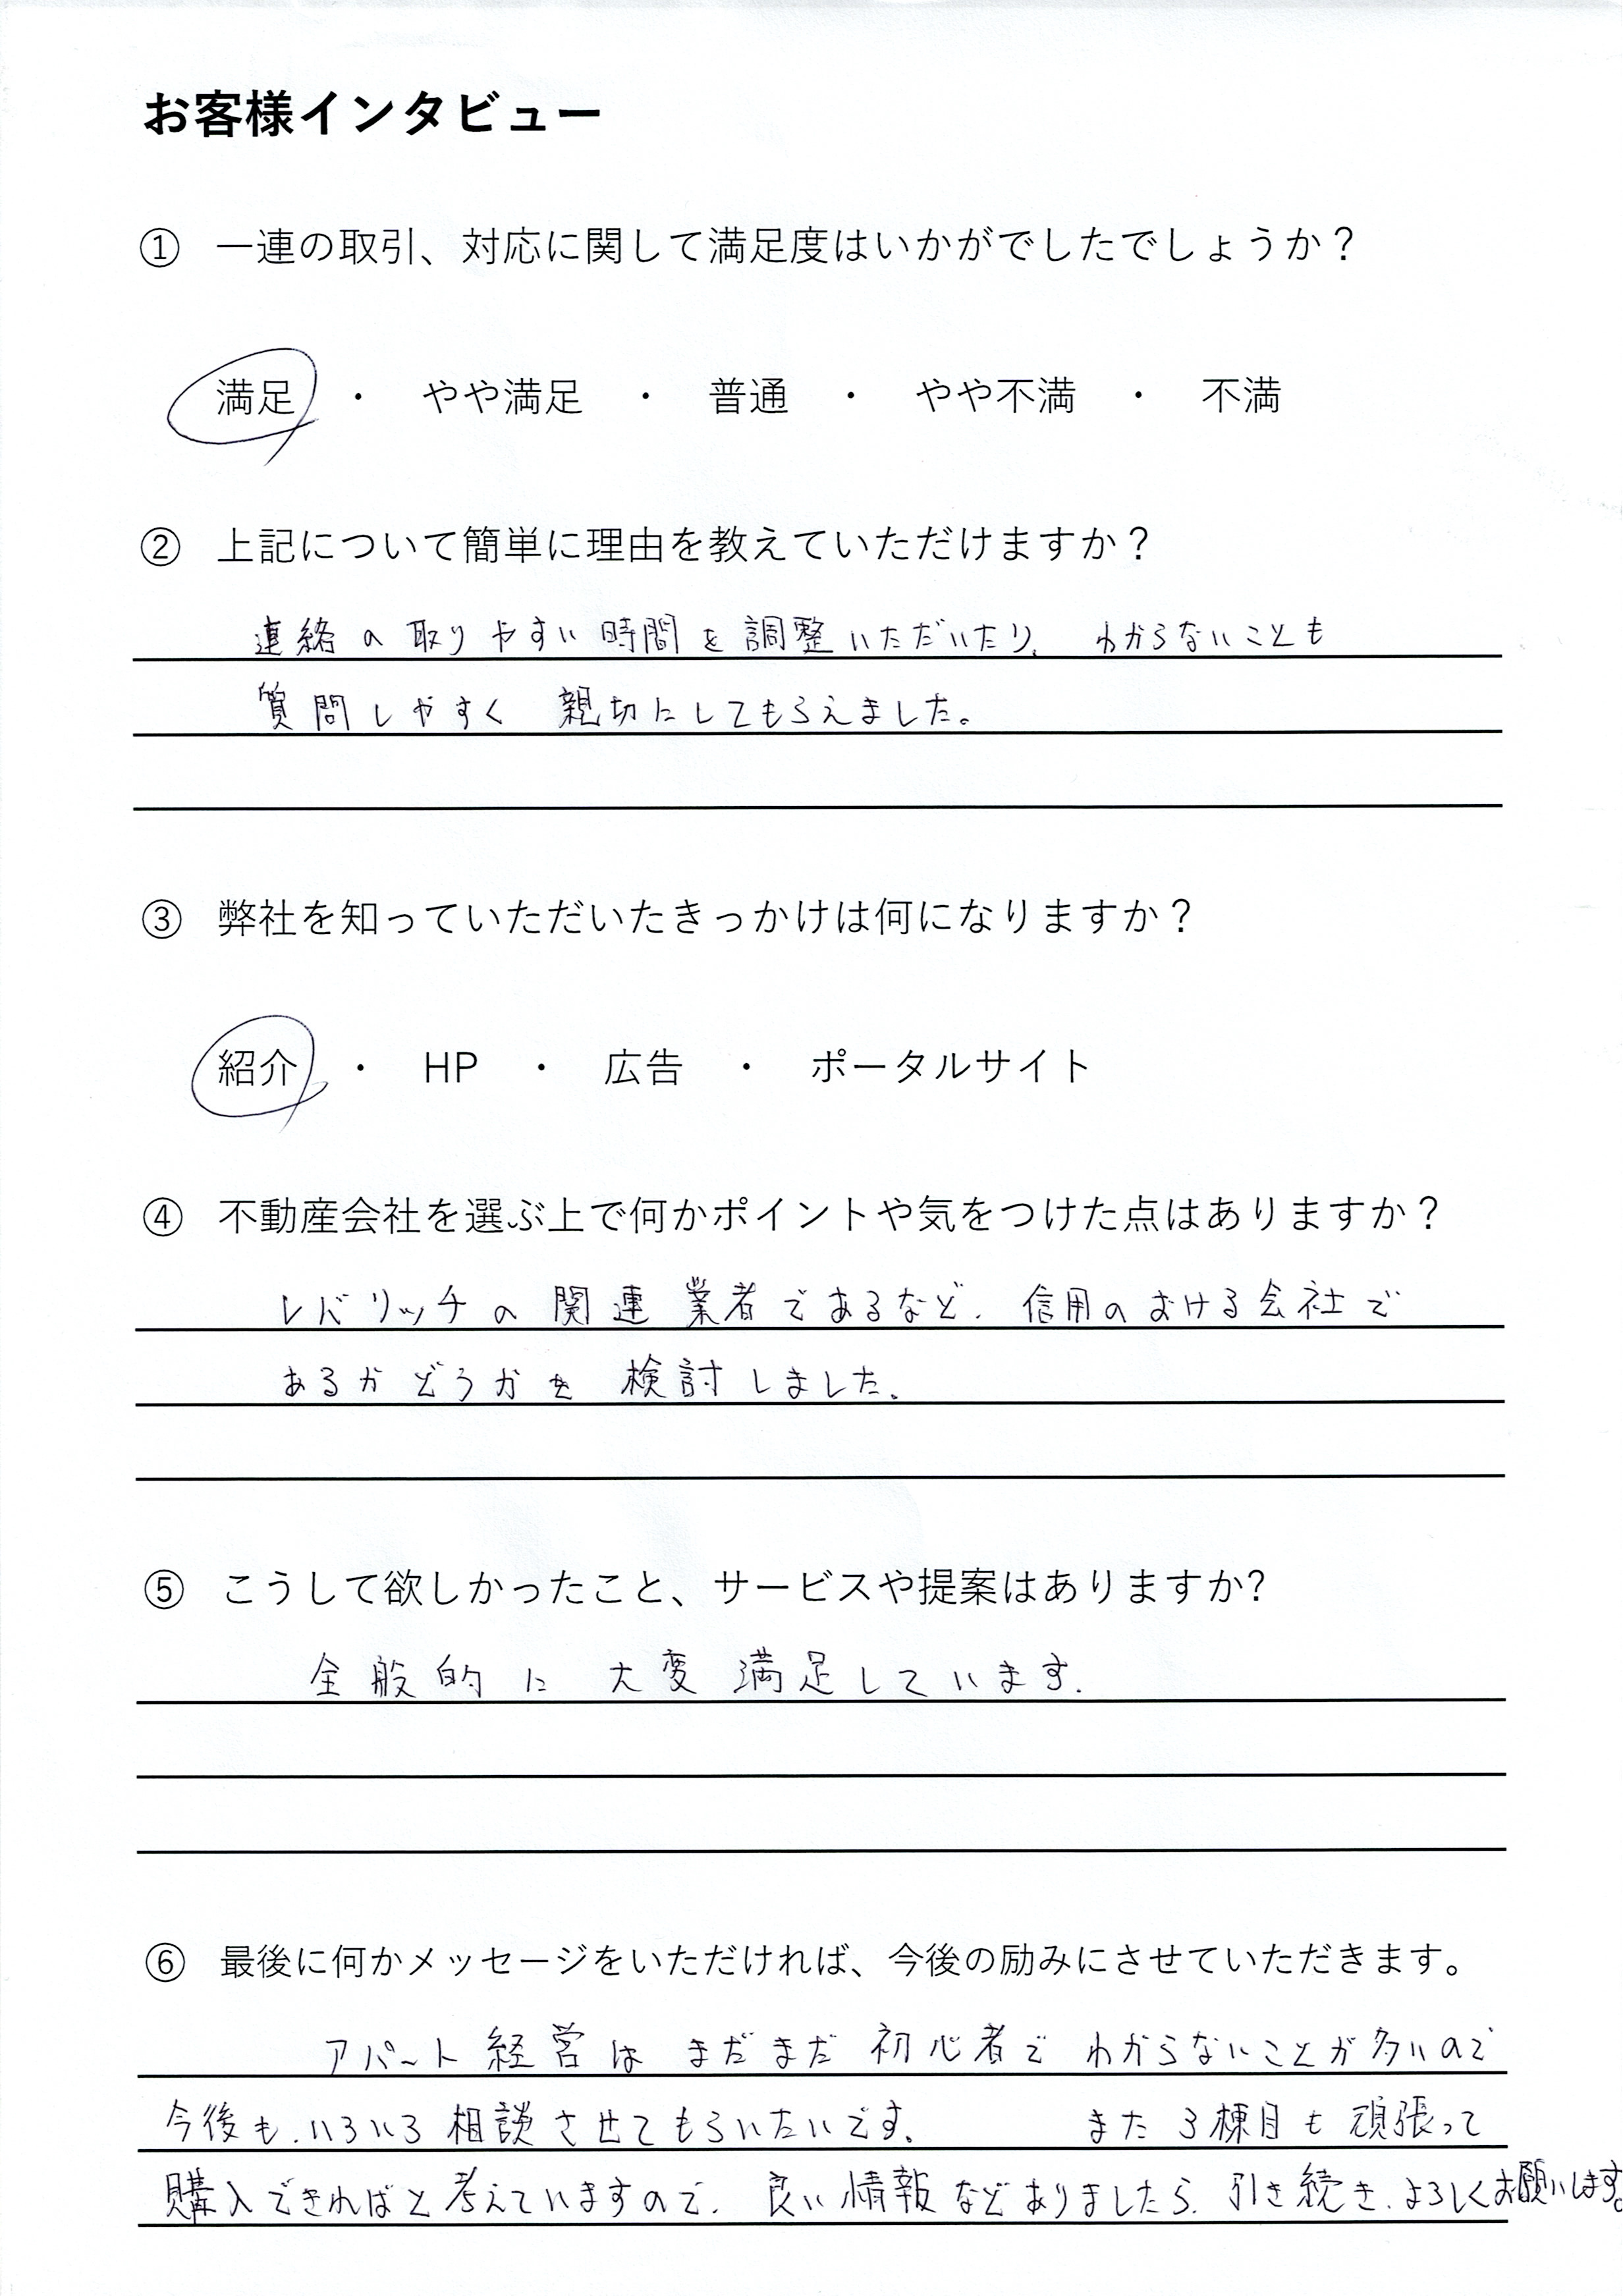 お客様インタビュー
① 一連の取引、対応に関して満足度はいかがでしたでしょうか？
満足 ・ やや満足 ・ 普通 ・ やや不満 ・ 不満
② 上記について簡単に理由を教えていただけますか？
連絡の取りやすい時間を調整いただいたり、わからないことも
質問しやすく 親切にしてもらえました。
③ 弊社を知っていただいたきっかけは何になりますか？
紹介 ・ HP ・ 広告 ・ ポータルサイト
④ 不動産会社を選ぶ上で何かポイントや気をつけた点はありますか？
レバリッチの関連業者であるなど、信用のおける会社で
あるかどうかを 検討しました。
⑤ こうして欲しかったこと、サービスや提案はありますか?
全般的に 大変満足しています.
⑥ 最後に何かメッセージをいただければ、今後の励みにさせていただきます。
アパート経営は まだまだ 初心者で わからないことが多いので
今後も、いろいろ相談させてもらいたいです。 また 3棟目も 頑張って
購入できればと考えていますので、良い情報などありましたら、引き続き、よろしくお願いします。